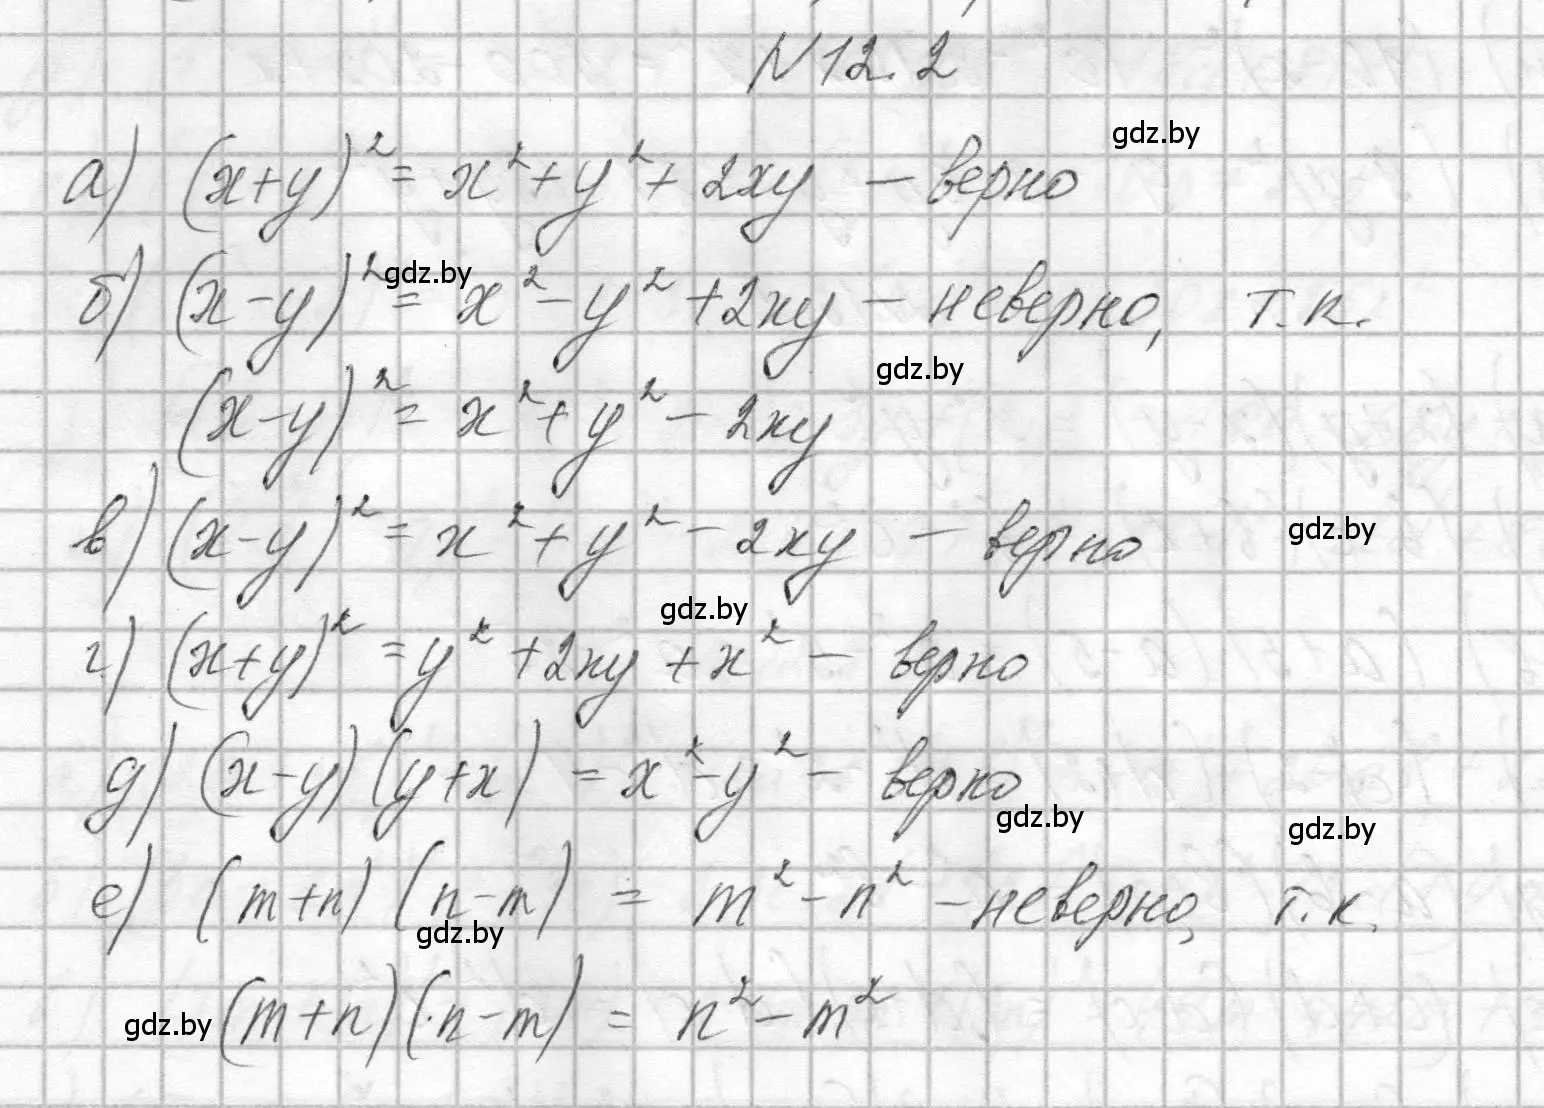 N12.2
gdz.by
а) (x+y)² = x²+y²+2xy – верно
gdz.by
б) (x-y)² = x²-y²+2xy – неверно, т.к.
gdz.by
(x-y)² = x²+y²-2xy
в) (x-y)² = x²+y²-2xy – верно
gdz.by
gdz.by
г) (x+y)² = y²+2xy+x² – верно
д) (x-y)(y+x) = x²-y² – верно
gdz.by
gdz.by
е) (m+n)(n-m) = m²-n² – неверно, т.к.
gdz.by
gdz.by
(m+n)(n-m) = n²-m²